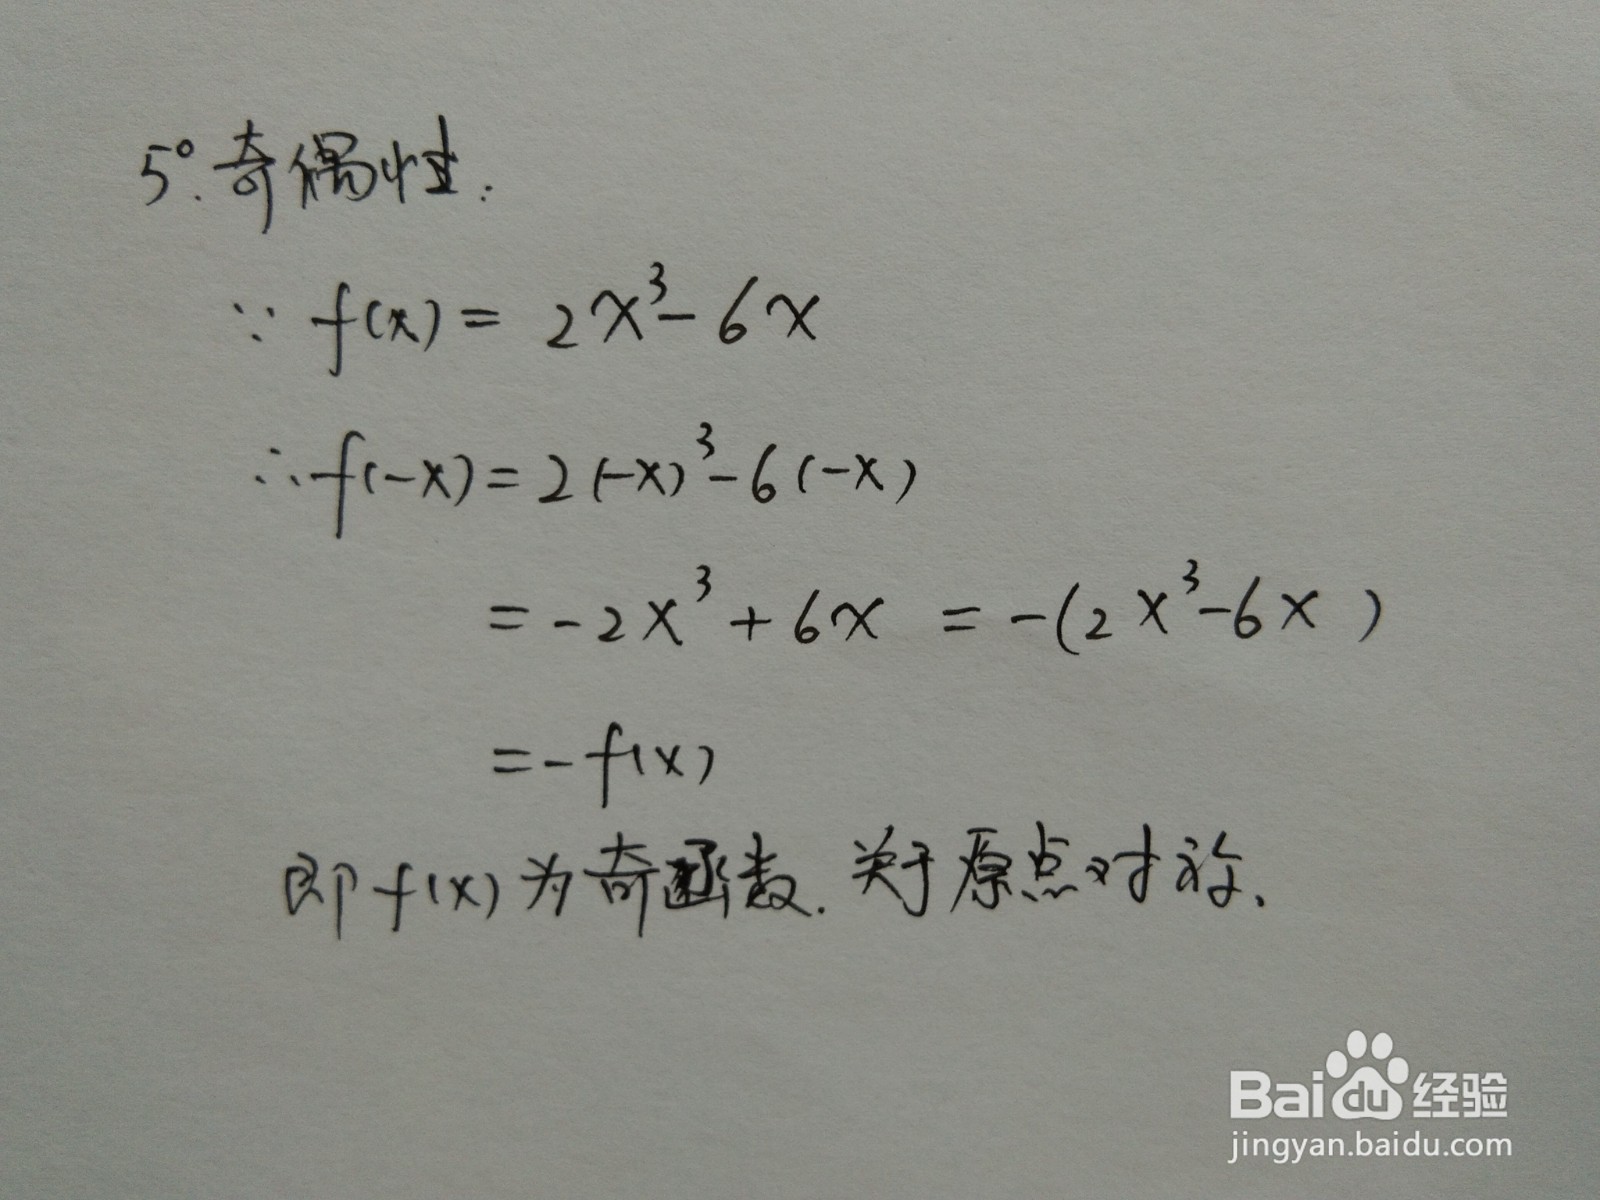 5°.奇偶性:
∵ f(x) = 2x³-6x
∴ f(-x) = 2(-x)³-6(-x)
= -2x³+6x = -(2x³-6x)
= -f(x)
即f(x)为奇函数.关于原点对称.
Baidu经验
jingyan.baidu.com